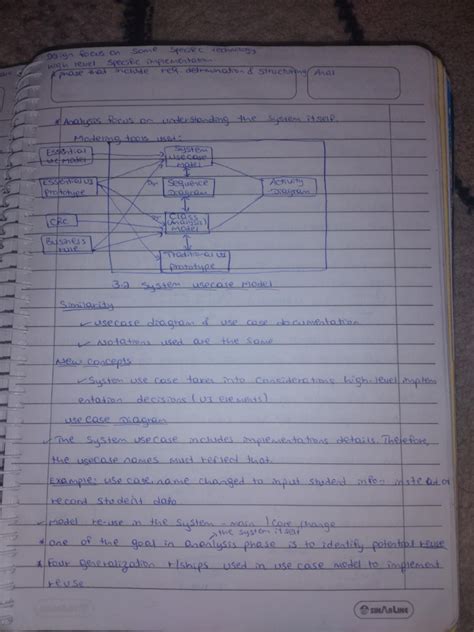 Design focus on some specific technology
high level specific implementation
* phase that include req determination & structuring Anal
* Analysis focus on understanding the system itself.
Modeling tools used:
Essential
use Model
System
Usecase
Model
Essential UI
prototype
Sequence
Diagram
Activity
Diagram
CRC
Class
(Analysis)
Model
Business
rule
Traditional UI
prototype
3.2 System usecase Model
Similarity
✓ Usecase diagram & use case documentation
✓ Notations used are the same
New concepts
✓ System use case takes into considerations high-level implem
entation decisions (UI elements)
use case Diagram
✓ The System usecase includes implementations details. Therefore,
the usecase names must reflect that.
Example: use case name changed to input student info = instead of
record student data
✓ Model re-use in the system - main / Core change
→ the system itself
* one of the goal in analysis phase is to identify potential reuse
* Four generalization r/ships used in use case model to implement
reuse
SINARLINE